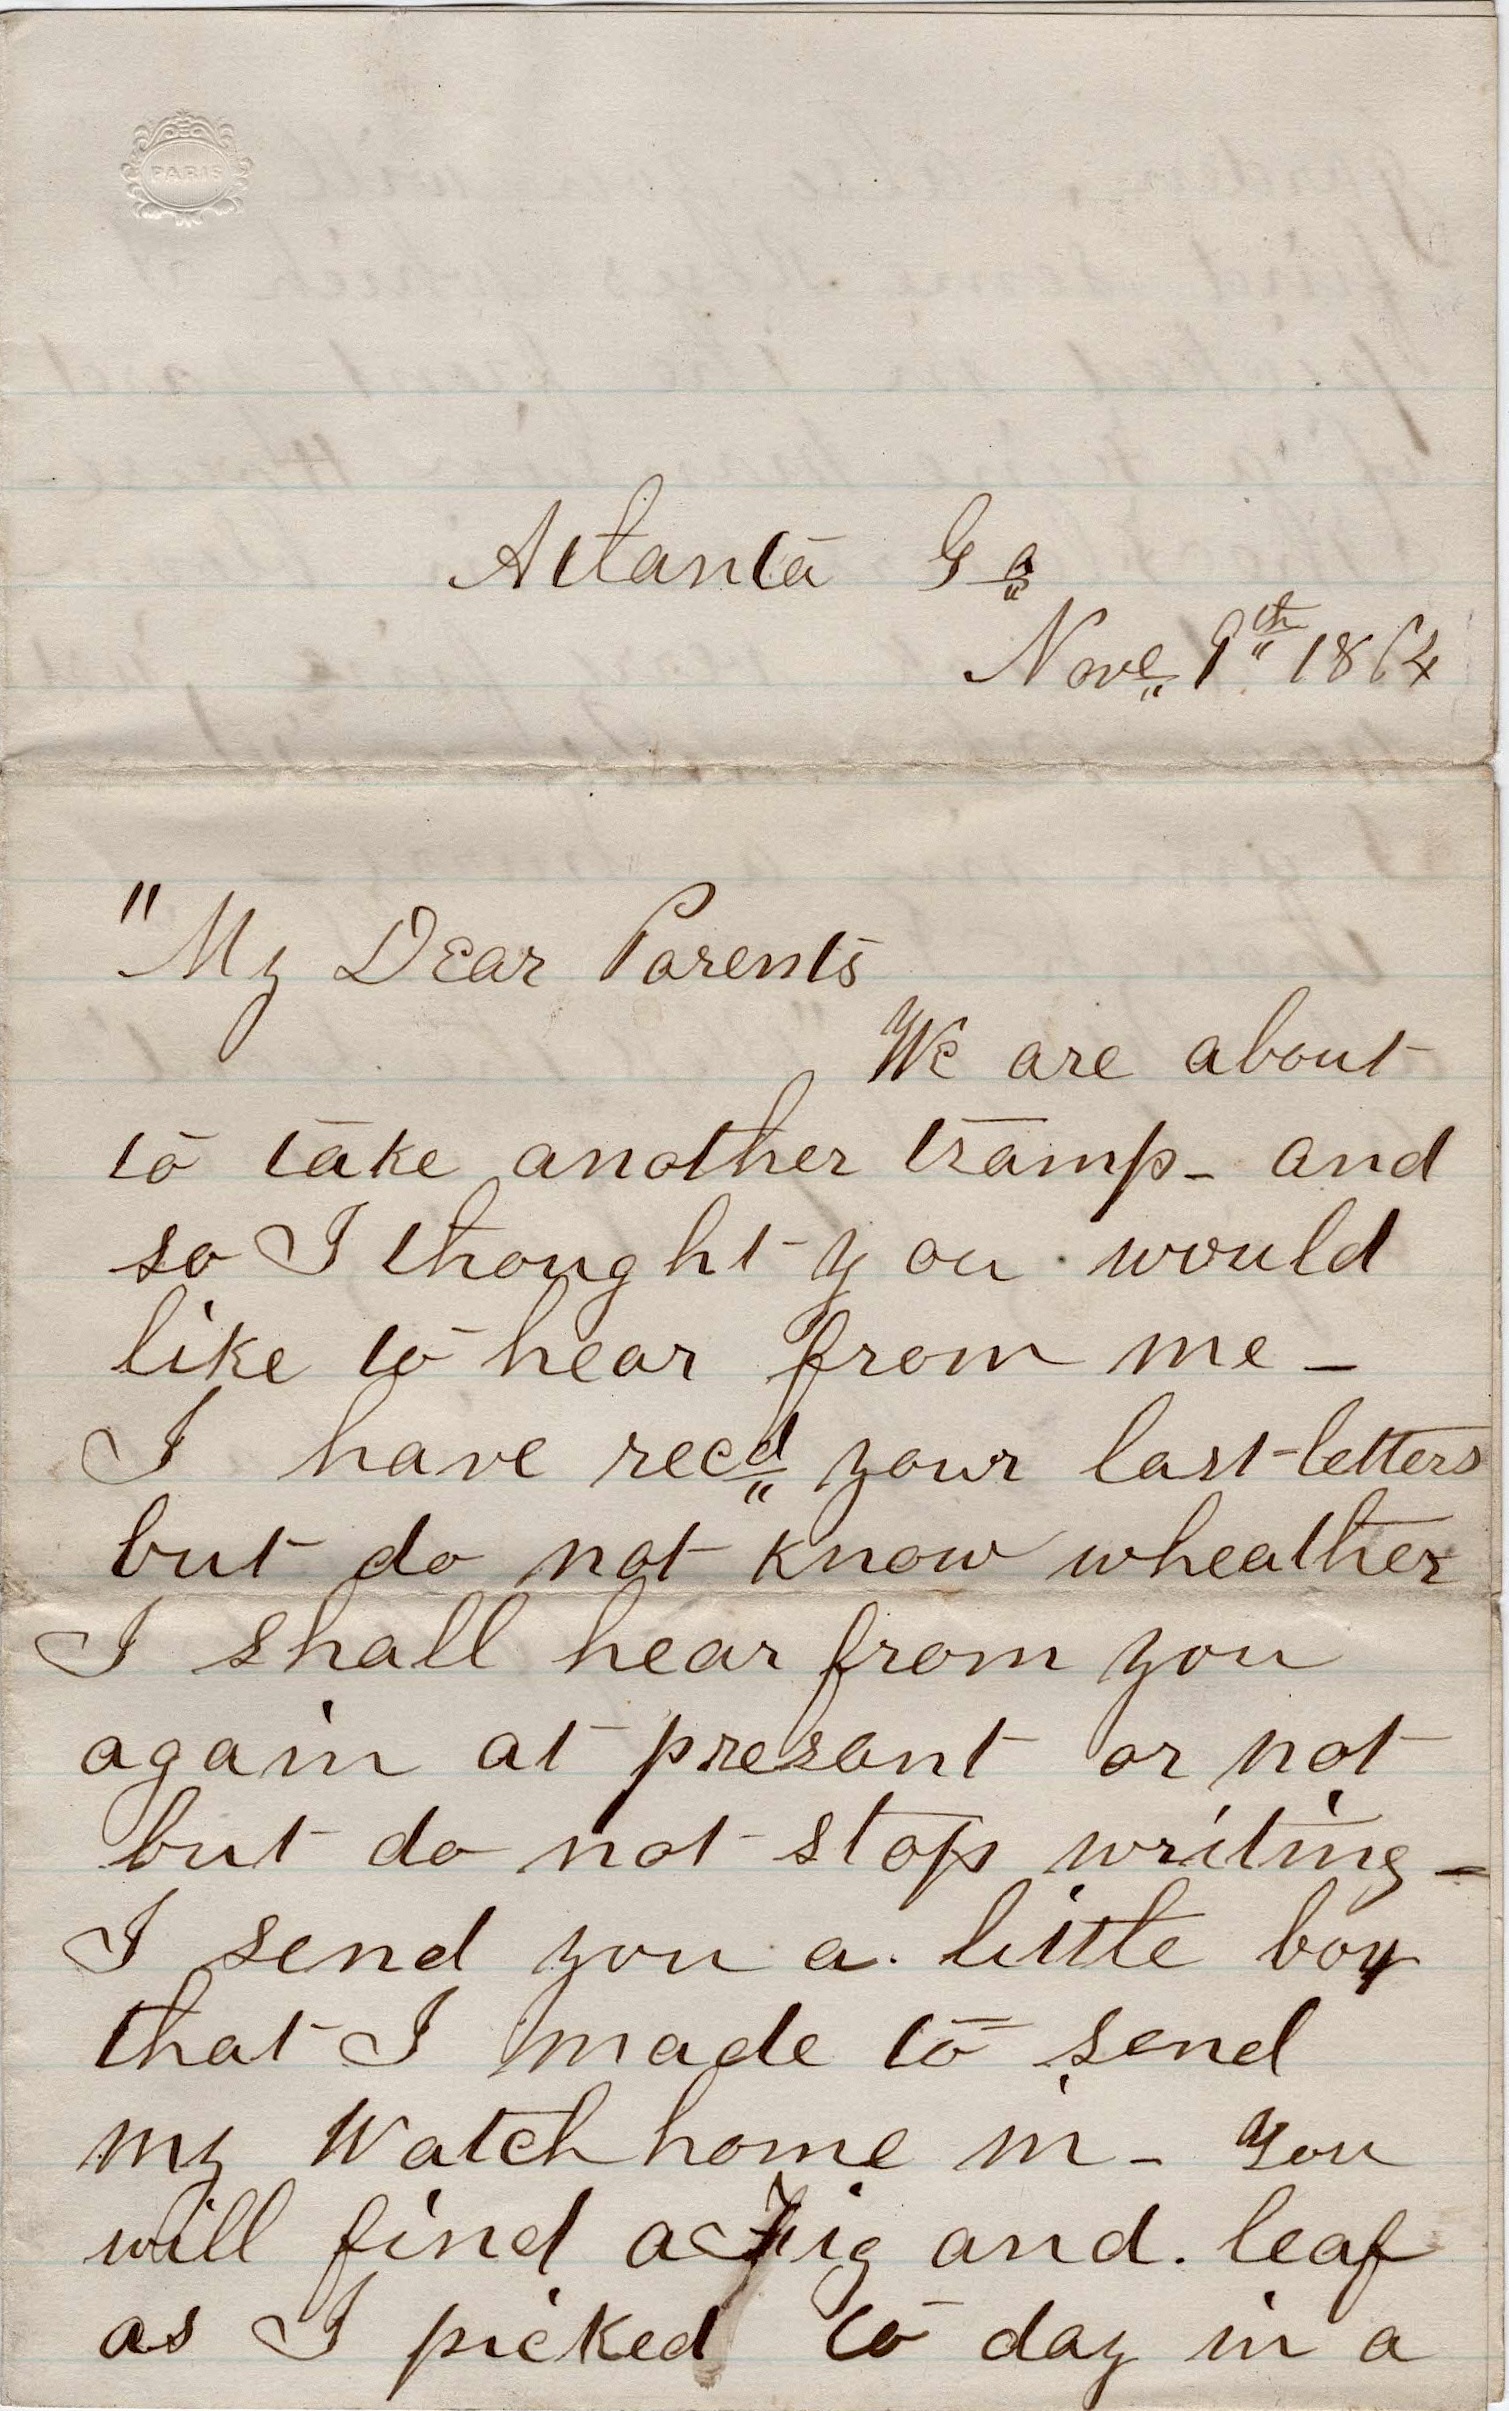 PARIS
Atlanta Ga
Nove 9th 1864
"My Dear Parents
We are about
to take another tramp - and
so I thought you would
like to hear from me -
I have recd your last letters
but do not know wheather
I shall hear from you
again at presant or not
but do not stop writing -
I send you a little boy
that I made to send
my Watch home in - you
will find a Fig and leaf
as I picked to day in a